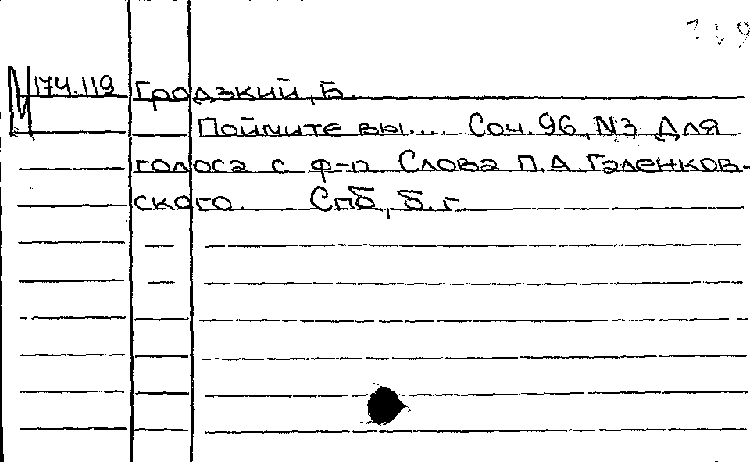 М 174.119 Гродзкий, Б.
Поймите вы.... Соч. 96, N3 Для
голоса с ф-п Слова П.А. Галенков-
ского. Спб, б.г.